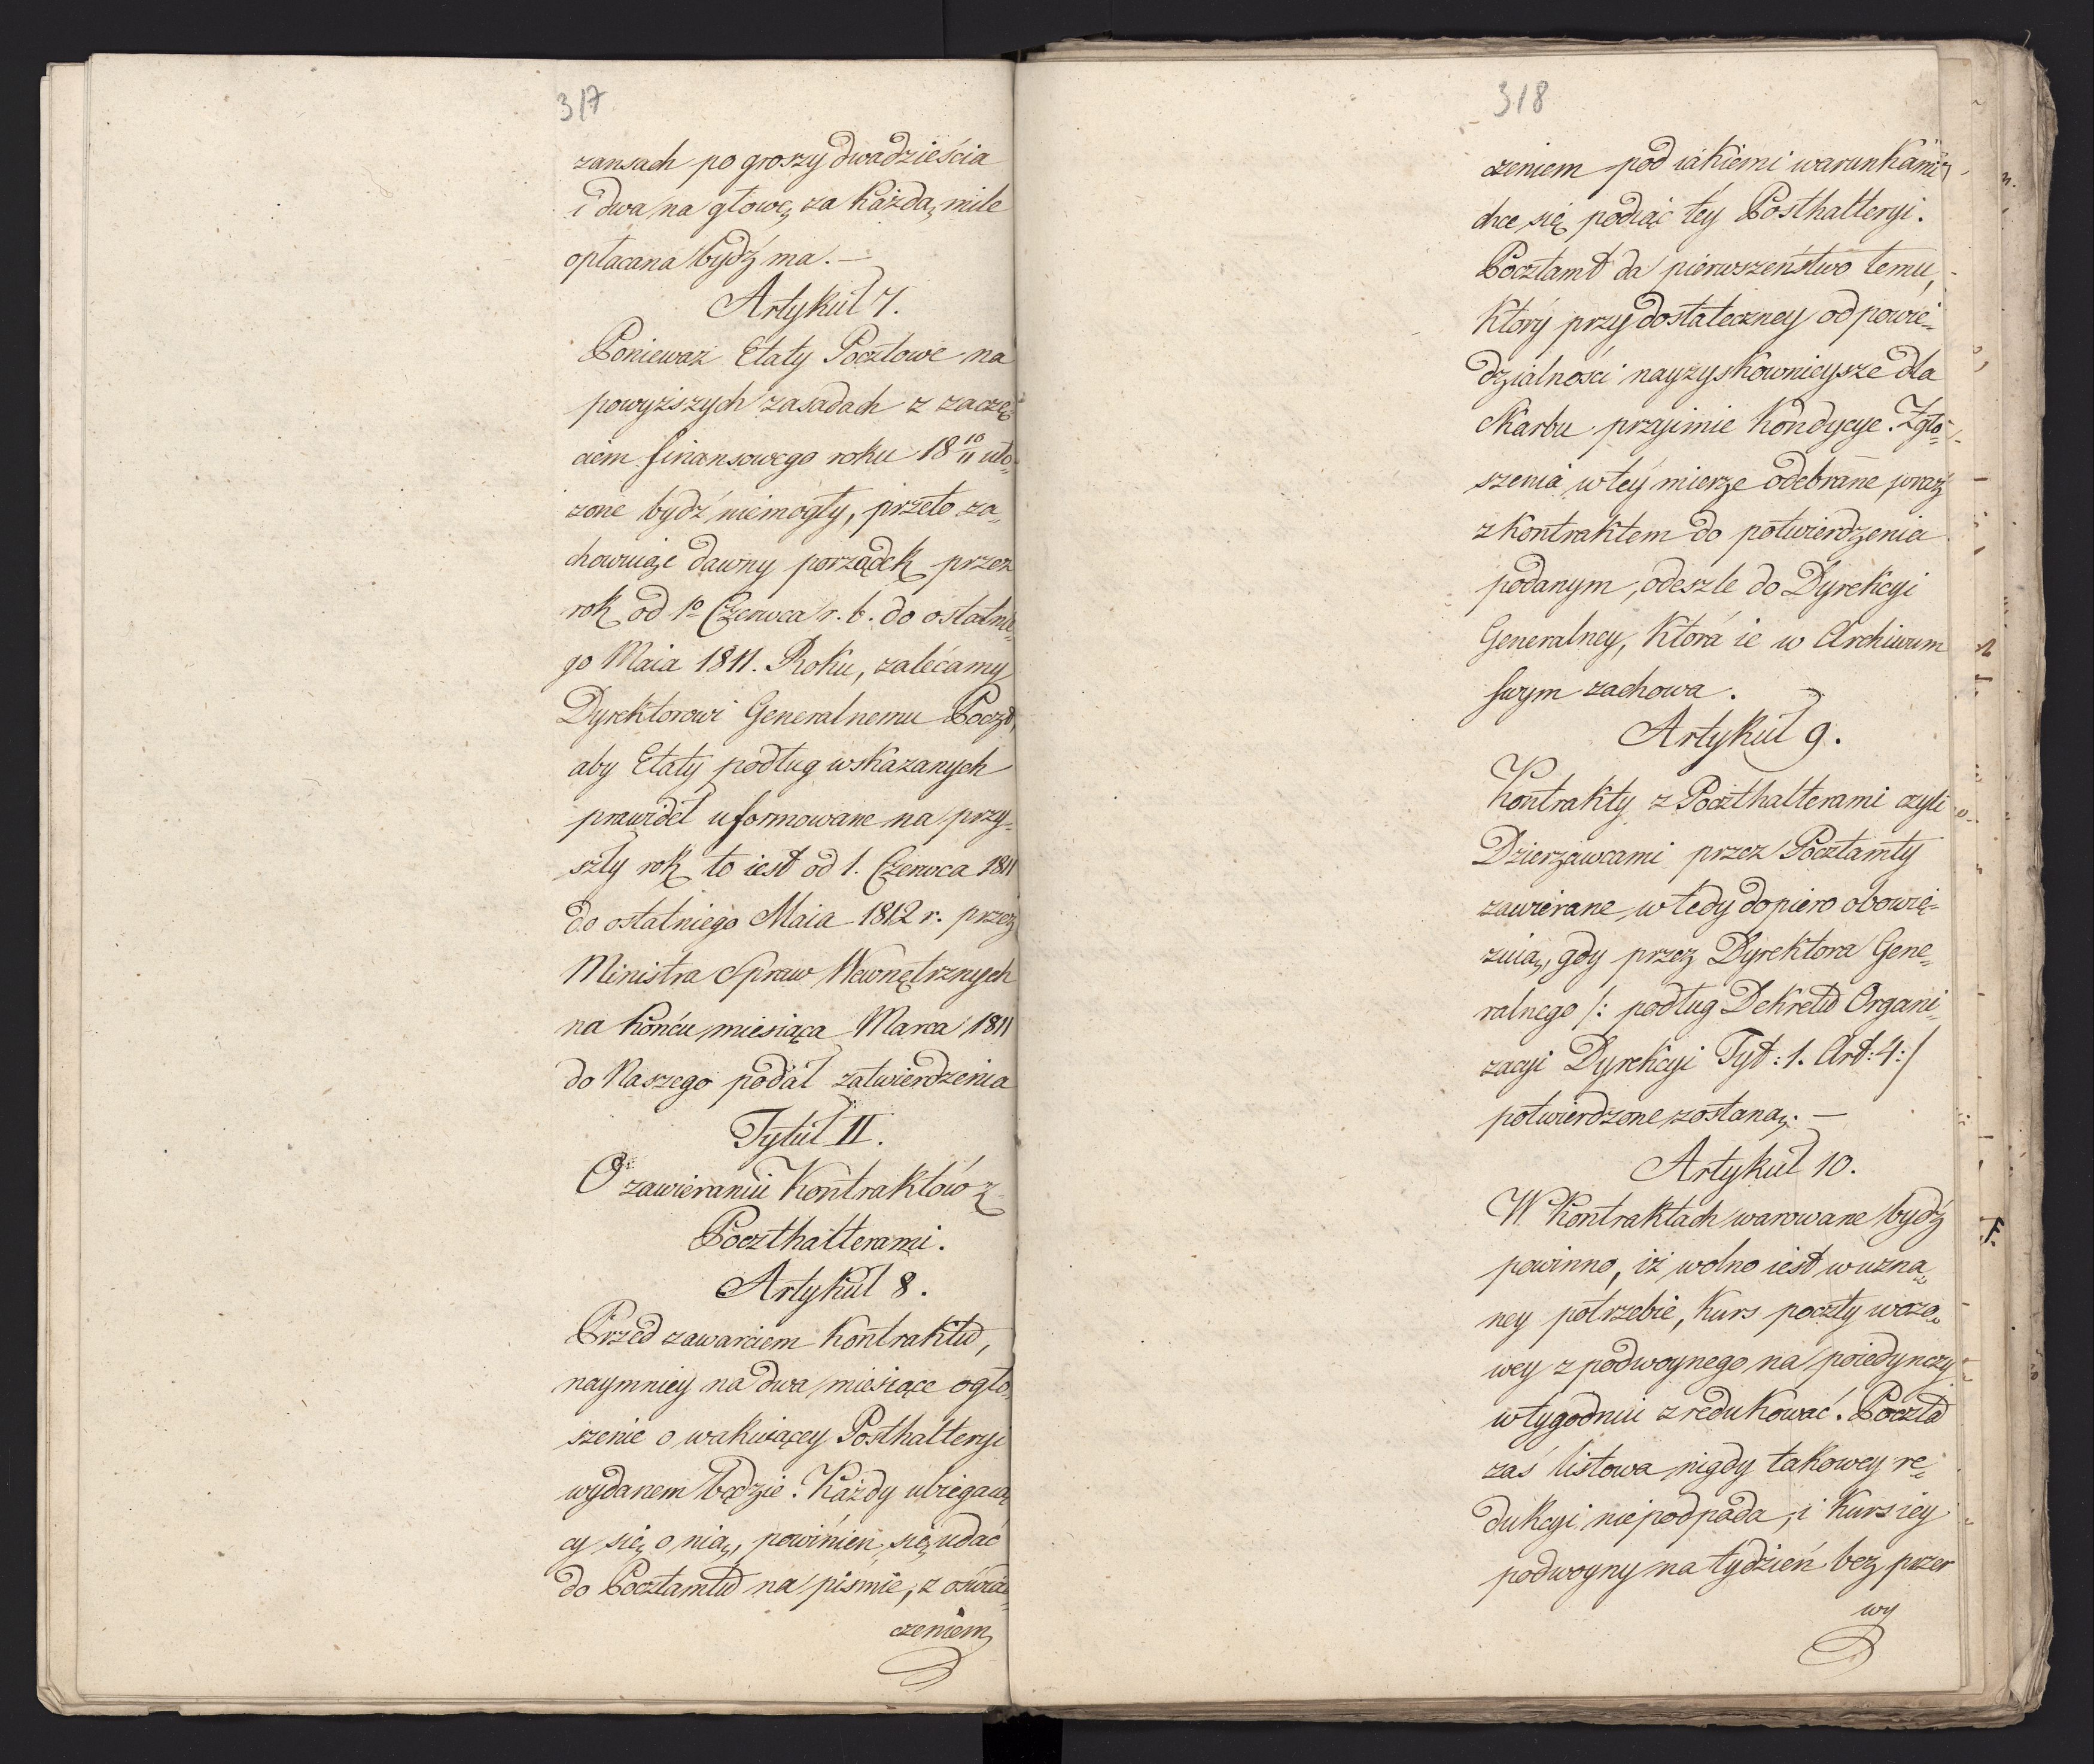 317
zansach po groszy dwadzieścia
i dwa na głowę za każdą mile
opłacana bydź ma. —
Artykuł 7.
Ponieważ Etaty Pocztowe na
powyższych zasadach z zaczę„
ciem finansowego roku 18 10/11 uło„
żone bydź niemogły, przeto za„
chowuiąc dawny porządek przez
rok od 1º Czerwca r. b. do ostatnie„
go Maia 1811. Roku, zalecamy
Dyrektorowi Generalnemu Poczt,
aby Etaty podług wskazanych
prawideł uformowane na przy„
szły rok to iest od 1. Czerwca 1811
do ostatniego Maia 1812 r. przez
Ministra Spraw Wewnętrznych
na końcu miesiąca Marca 1811
do Naszego podał zatwierdzenia
Tytuł II.
O zawieraniu Kontraktów z
Poczthalterami.
Artykuł 8.
Przed zawarciem Kontraktu,
naymniey na dwa miesiące ogło„
szenie o wakuiącey Posthalteryi
wydanem będzie. Każdy ubiegaią„
cy się o nią, powinien się udać
do Pocztamtu na pismie, z oświad„
czeniem
318
czeniem pod iakiemi warunkami
chce się podiąć tey Posthalteryi.
Pocztamt da pierwszeństwo temu,
który przy dostateczney odpowie„
dzialności nayzyskownieysze dla
Skarbu przyimie Kondycye. Zgło„
szenia w tey mierze odebrane wraz
z kontraktem do potwierdzenia
podanym, odeszle do Dyrekcyi
Generalney, która ie w Archiwum
swym zachowa.
Artykuł 9.
Kontrakty z Poczthalterami czyli
Dzierzawcami przez Pocztamty
zawierane wtedy dopiero obowię„
zuią, gdy przez Dyrektora Gene„
ralnego /: podług Dekretu Organi„
zacyi Dyrekcyi Tyt: 1. Art: 4:/
potwierdzone zostaną. —
Artykuł 10.
W Kontraktach warowane bydź
powinno, iż wolno iest w uzna„
ney potrzebie, Kurs poczty wozo„
wey z podwoynego na poiedynczy
w tygodniu zredukować. Poczta
zaś listowa nigdy takowey re„
dukcyi niepodpada, i Kurs iey
podwoyny na tydzień bez przer
wy